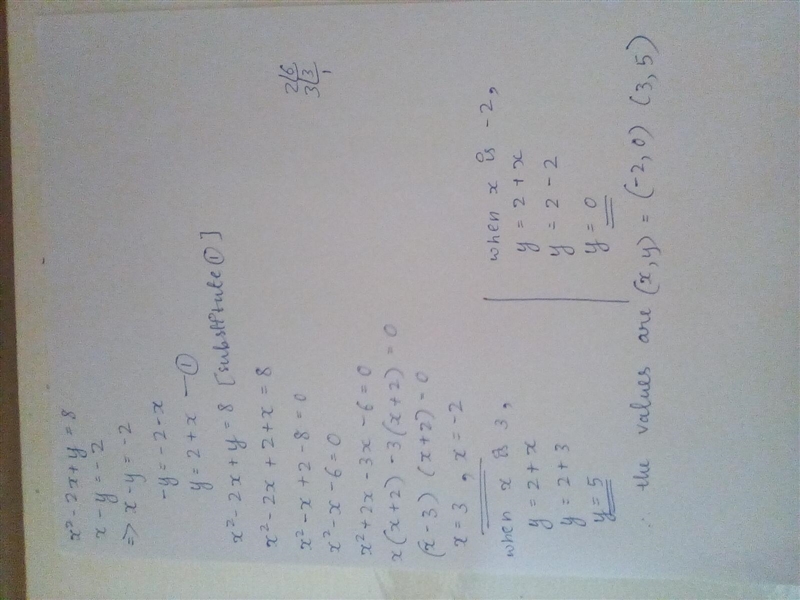 x² - 2x + y = 8
x - y = -2
=> x - y = -2
-y = -2 - x
y = 2 + x — ①
x² - 2x + y = 8 [substitute ①]
x² - 2x + 2 + x = 8
x² - x + 2 - 8 = 0
x² - x - 6 = 0
2|6
3|3
1
x² + 2x - 3x - 6 = 0
x(x+2) - 3(x+2) = 0
(x-3) (x+2) = 0
x = 3, x = -2
when x is 3,
y = 2 + x
y = 2 + 3
y = 5
when x is -2,
y = 2 + x
y = 2 - 2
y = 0
∴ the values are (x, y) = (-2, 0) (3, 5)